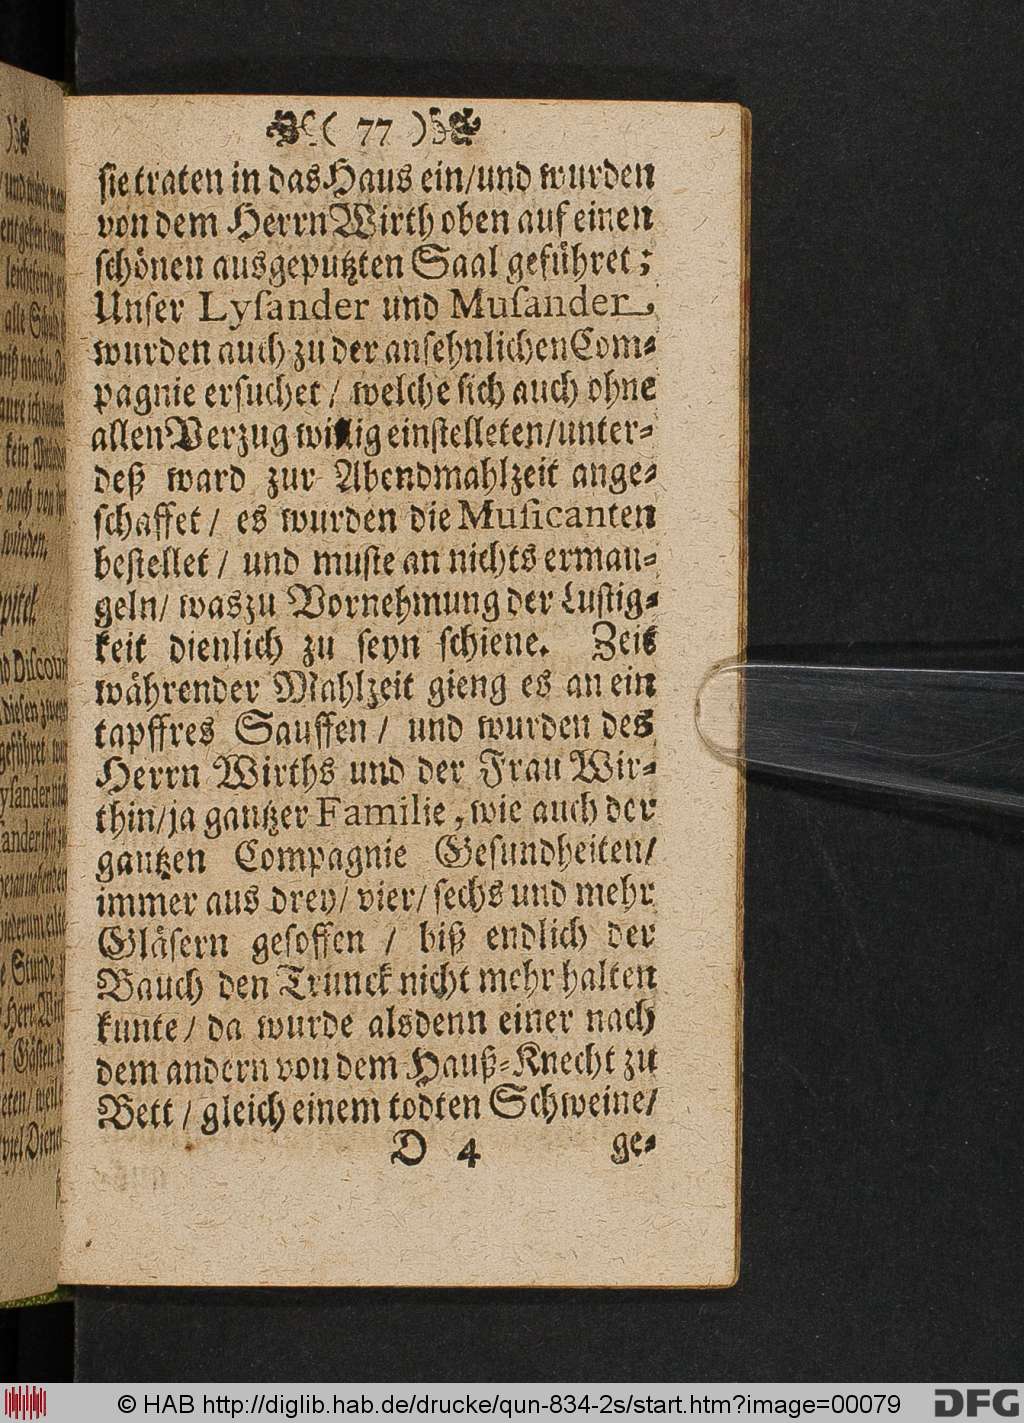 ( 77 )
sie traten in das Haus ein/und wurden
von dem Herrn Wirth oben auf einen
schönen ausgeputzten Saal geführet;
Unser Lysander und Musander,
wurden auch zu der ansehnlichen Com-
pagnie ersuchet / welche sich auch ohne
allen Verzug willig einstelleten/unter-
deß ward zur Abendmahlzeit ange-
schaffet / es wurden die Musicanten
bestellet / und muste an nichts erman-
geln/ was zu Vornehmung der Lustig-
keit dienlich zu seyn schiene. Zeit
währender Mahlzeit gieng es an ein
tapffres Sauffen / und wurden des
Herrn Wirths und der Frau Wir-
thin/ja gantzer Familie, wie auch der
gantzen Compagnie Gesundheiten/
immer aus drey/ vier/ sechs und mehr
Gläsern gesoffen / biß endlich der
Bauch den Trunck nicht mehr halten
kunte/ da wurde alsdenn einer nach
dem andern von dem Hauß-Knecht zu
Bett / gleich einem todten Schweine/
D 4 ge-
© HAB http://diglib.hab.de/drucke/qun-834-2s/start.htm?image=00079
DFG